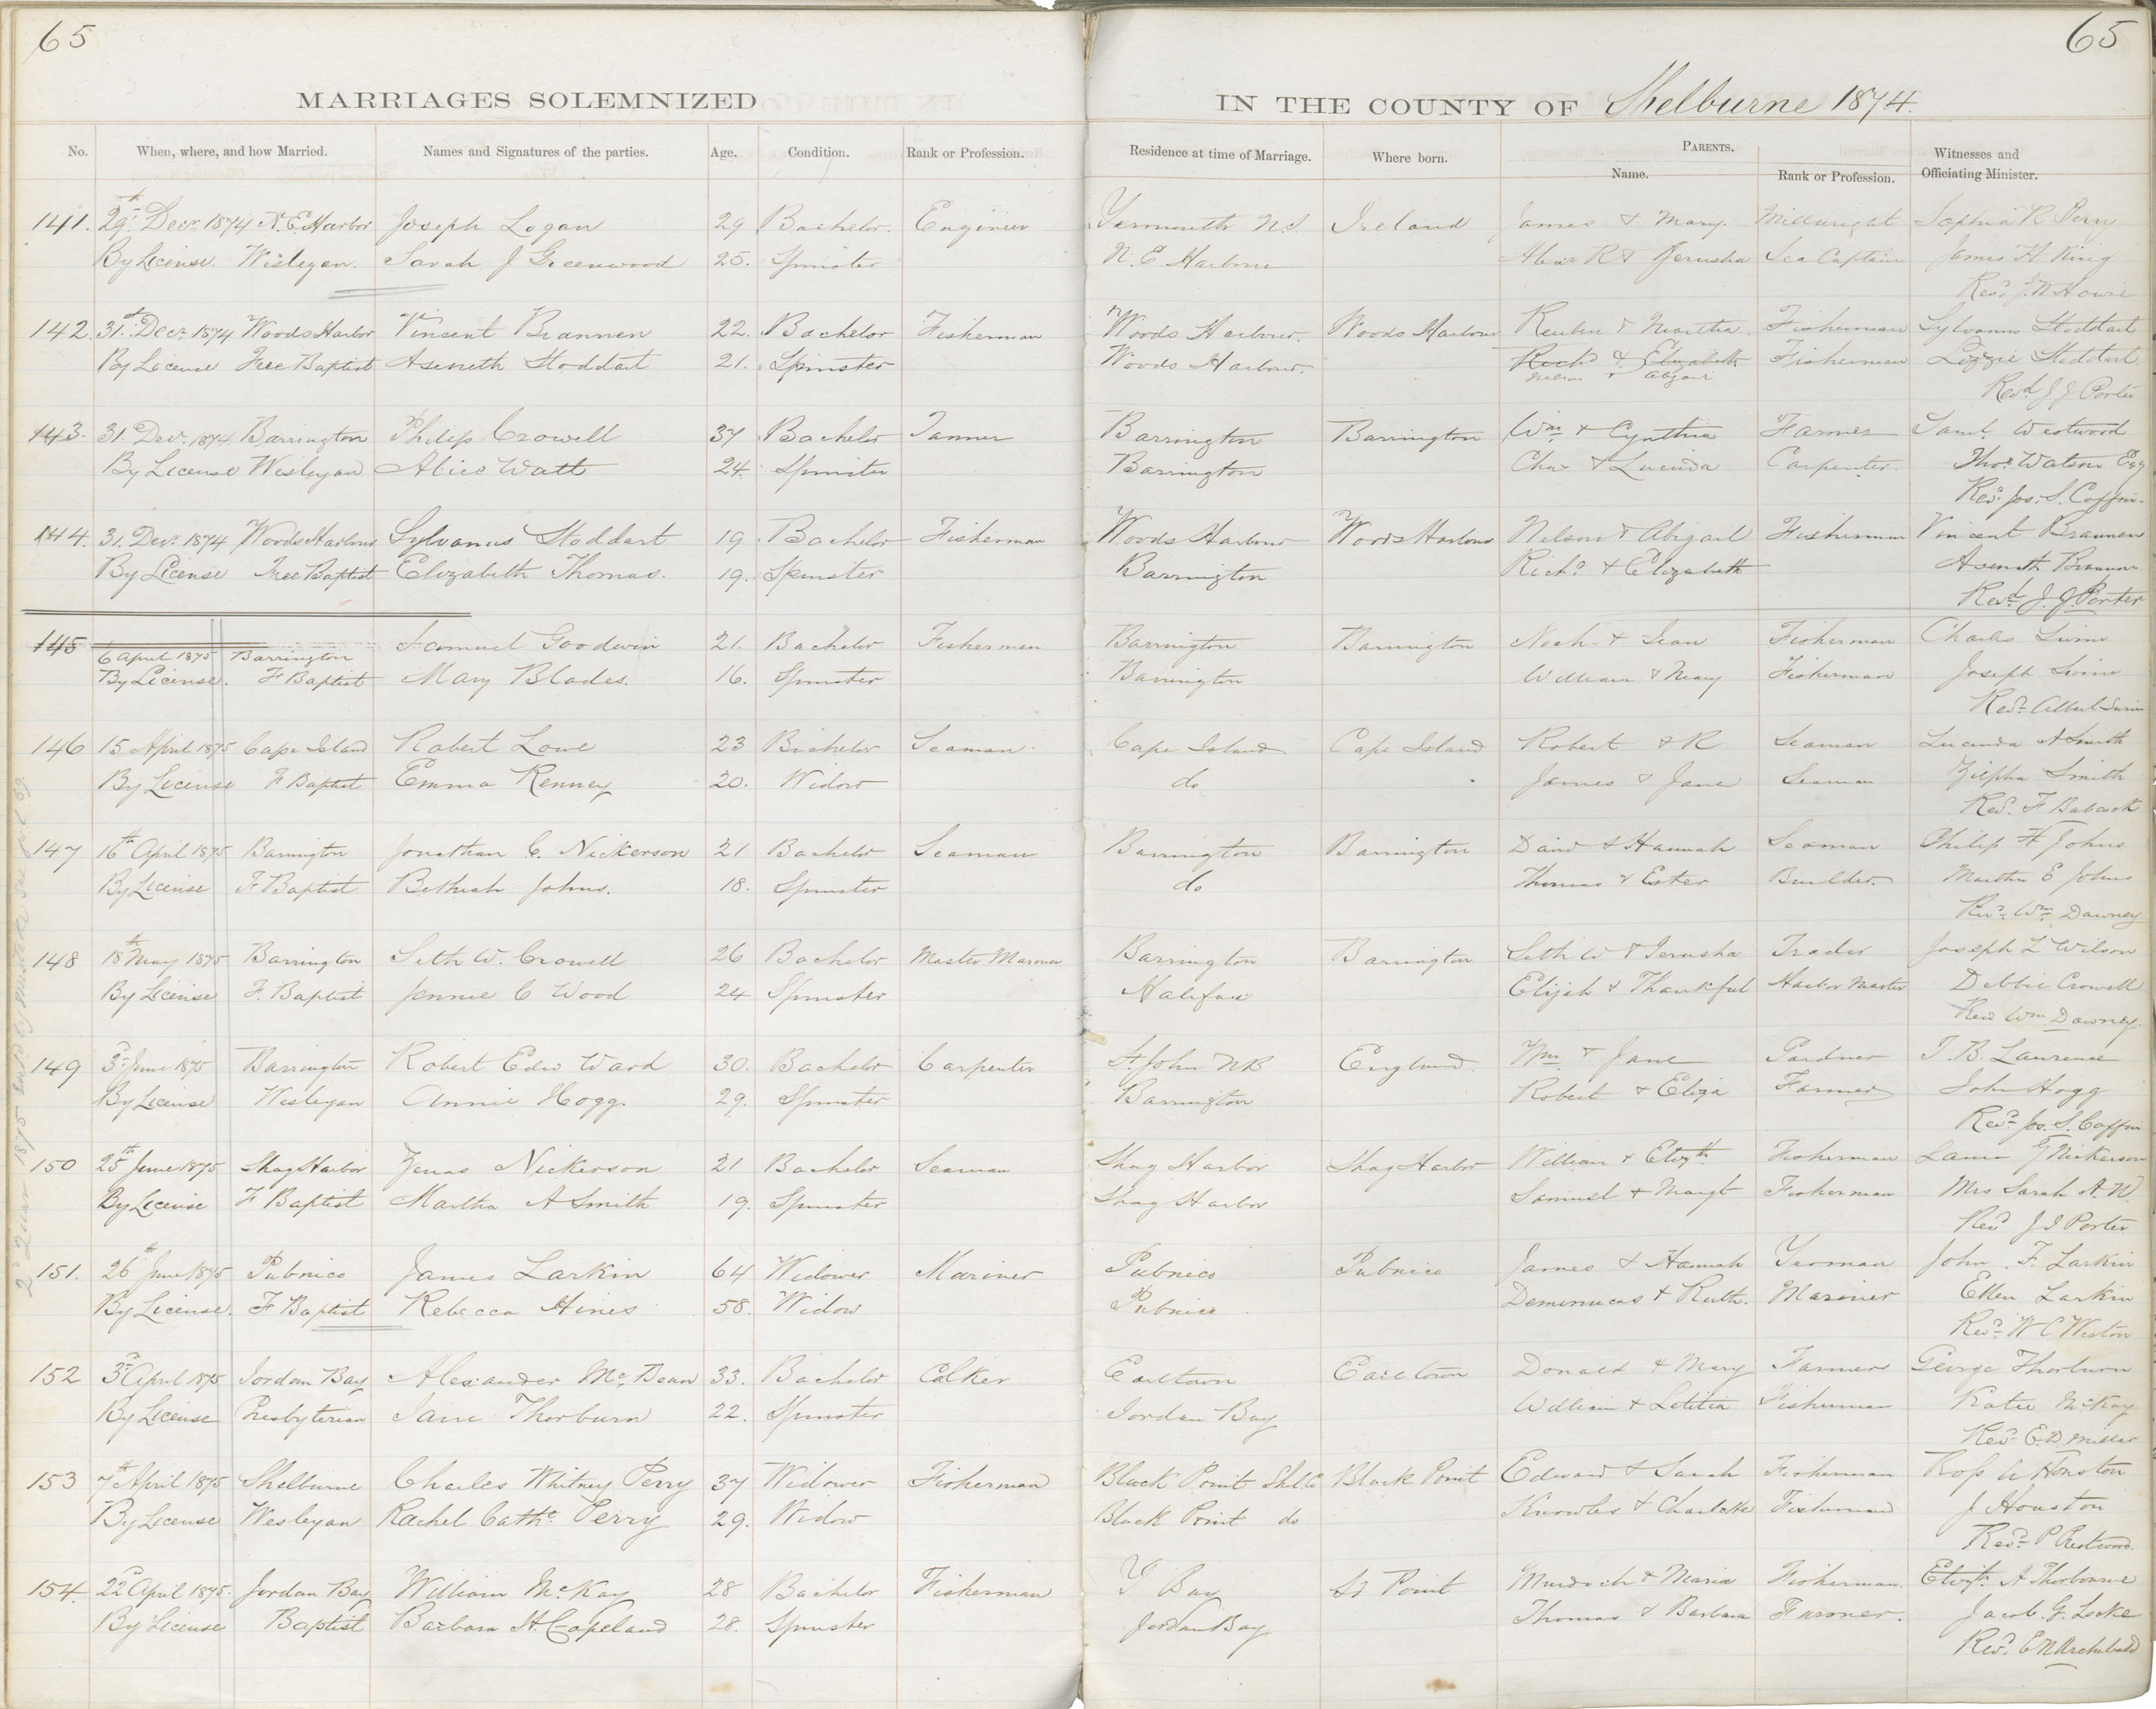 65
65
MARRIAGES SOLEMNIZED IN THE COUNTY OF Shelburne 1874.
No. When, where, and how Married. Names and Signatures of the parties. Age. Condition. Rank or Profession. Residence at time of Marriage. Where born. PARENTS. Witnesses and
Name. Rank or Profession. Officiating Minister.
141. 29th Decr 1874 N. E. Harbor Joseph Logan 29 Bachelor. Engineer Yarmouth N.S. Ireland James & Mary. Millwright Sophia R Perry
By License. Wesleyan. Sarah J Greenwood 25. Spinster N. E Harbour & Jerusha Sea Captain James H King
Revd J. N Howie
142. 31st Decr 1874 Woods Harbor Vincent Brannen 22. Bachelor Fisherman Woods Harbour. Woods Harbour Reuben & Martha. Fisherman Sylvanus Stoddart
By License Free Baptist Aseneth Stoddart 21. Spinster Woods Harbour. Richd & Elizabeth Fisherman Lizzie Stoddart
Nelson & Abigail Revd J J Porter
143. 31. Decr 1874 Barrington Philip Crowell 37 Bachelor Tanner Barrington Barrington Wm & Cynthia Farmer Saml. Westwood
By License Wesleyan Alice Watt 24. Spinster Barrington Chas & Lucinda Carpenter. Thos Watson Esq
Revd Jos. S. Coffin.
144. 31. Decr 1874 Woods Harbour Sylvanus Stoddart 19 Bachelor Fisherman Woods Harbour Woods Harbour Nelson & Abigail Fisherman Vincent Brannen
By License Free Baptist Elizabeth Thomas. 19. Spinster Barrington Richd & Elizabeth Aseneth Brannen
Revd J. J. Porter
145 Samuel Goodwin 21. Bachelor Fisherman Barrington Barrington Noah & Jean Fisherman Charles Swim
6 April 1875 Barrington
By License. F Baptist Mary Blades. 16. Spinster Barrington William & Mary Fisherman Joseph Swim
Revd Albert Swim
146 15 April 1875 Cape Island Robert Lowe 23 Bachelor Seaman. Cape Island Cape Island Robert & R Seaman Lucinda A Smith
By License F Baptist Emma Kenney 20. Widow do James & Jane Seaman Zilpha Smith
Revd. F Babcock
147 16th April 1875 Barrington Jonathan C. Nickerson 21 Bachelor Seaman Barrington Barrington David & Hannah Seaman Philip H Johns
By License F Baptist Bethiah Johns. 18. Spinster do Thomas & Ester Builder. Martha E Johns
Revd Wm Downey
148 18th May 1875 Barrington Seth W. Crowell 26 Bachelor Master Mariner Barrington Barrington Seth W & Jerusha Trader Joseph L Wilson
By License F. Baptist Jennie C Wood 24 Spinster Halifax Elijah & Thankful Harbor Master Debbie Crowell
Revd Wm Downey
149 3d June 1875 Barrington Robert Edw Ward 30. Bachelor Carpenter St. John NB England. Wm & Jane Gardner T. B. Laurence
By License Wesleyan Annie Hogg. 29. Spinster Barrington Robert & Eliza Farmer John Hogg
Revd Jos. S. Coffin
150 25th June 1875 Shag Harbor Zenas Nickerson 21 Bachelor Seaman Shag Harbor Shag Harbor William & Elizth. Fisherman Laura G Nickerson
By License F Baptist Martha A Smith 19. Spinster Shag Harbor Samuel & Margt Fisherman Mrs Sarah A. N.
Revd J J Porter
151. 26th June 1875 Pubnico James Larkin 64 Widower Mariner Pubnico Pubnico James & Hannah Yeoman John F. Larkin
By License. F Baptist Rebecca Hines 58. Widow Pubnico & Ruth. Mariner Ellen Larkin
Revd W C Weston
152 3d April 1875 Jordan Bay Alexander McBean 33. Bachelor Calker Earltown Earltown Donald & Mary Farmer George Thorburn
By License Presbyterian Jane Thorburn 22. Spinster Jordan Bay William & Letitia Fisherman Katie McKay
Revd E. D. Millar
153 7th April 1875 Shelburne Charles Whitney Perry 37 Widower Fisherman Black Point Shel.Co Black Point Edward & Sarah Fisherman Ross W Houston
By License Wesleyan Rachel Cathe. Perry 29. Widow Black Point do Knowles & Charlotte Fisherman J Houston
Revd P Prestwood.
154. 22d April 1875. Jordan Bay William McKay 28 Bachelor Fisherman Bay Point Murdoch & Maria Fisherman. Elizth. A Thorbourne
By License Baptist Barbara H. Copeland 28. Spinster Jordan Bay Thomas & Barbara Farmer. Jacob G. Locke
Revd. E N Archibald
2d Quar 1875 entd by mistake see fol 69